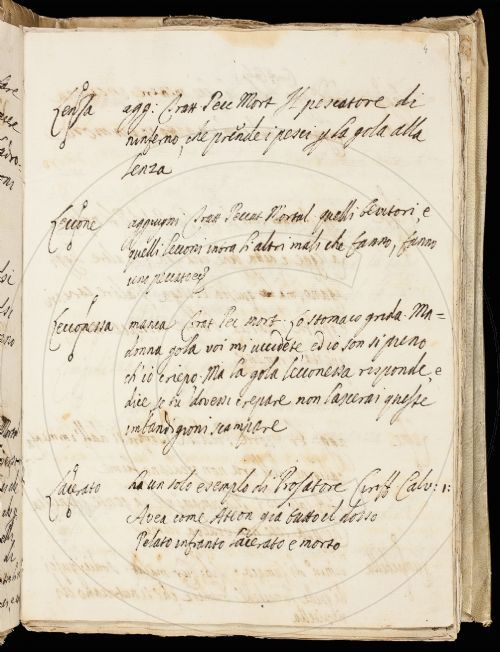 4
Lensa agg: Tratt Pecc Mort Il pescatore di
ninferno, che prende i pesci p la gola alla
lenza
Leccone aggiugni: Tratt Peccat Mortal quelli bevitori, e
quelli lecconi infra gli altri mali che fanno, fanno
uno peccato
Lecconessa manca Trat Pec mort. Lo stomaco grida. Ma=
donna gola voi mi uccidete ed io son si pieno
ch' io criepo. Ma la gola lecconessa risponde, e
dice se tu dovessi crepare non lascerai queste
imbandigioni scampare
Lacerato ha un solo esemplo di Prosatore Ciriff Calv: 1:
Avea come Atteon già tutto il dosso
Pelato infranto lacerato e morto